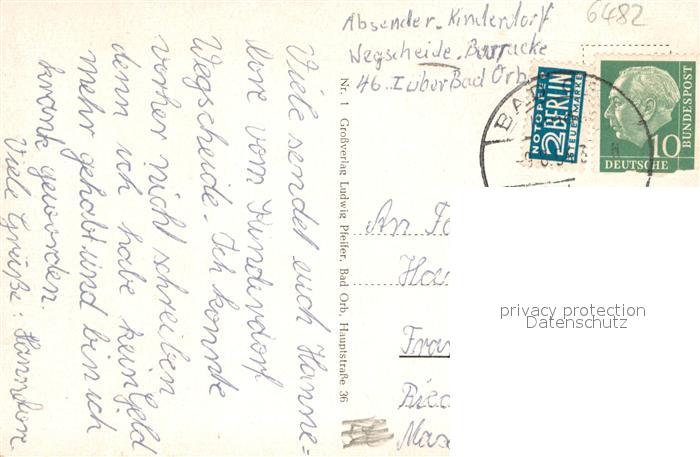 6482
Absender. Kinderdorf
Wegscheide. Barracke
46. I über Bad Orb
Viele sendet euch Hanne=
lore vom Kinderdorf
Wegscheide. Ich konnte
vorher nicht schreiben
denn ich habe kein Geld
mehr gehabt und bin ich
krank geworden.
Viele Grüße: Hannelore
Nr. 1 Großverlag Ludwig Pfeifer, Bad Orb, Hauptstraße 36
NOTOPFER
2 BERLIN
STEUERMARKE
DEUTSCHE
BUNDESPOST
10
BAD
An Fa
Fran
privacy protection
Datenschutz